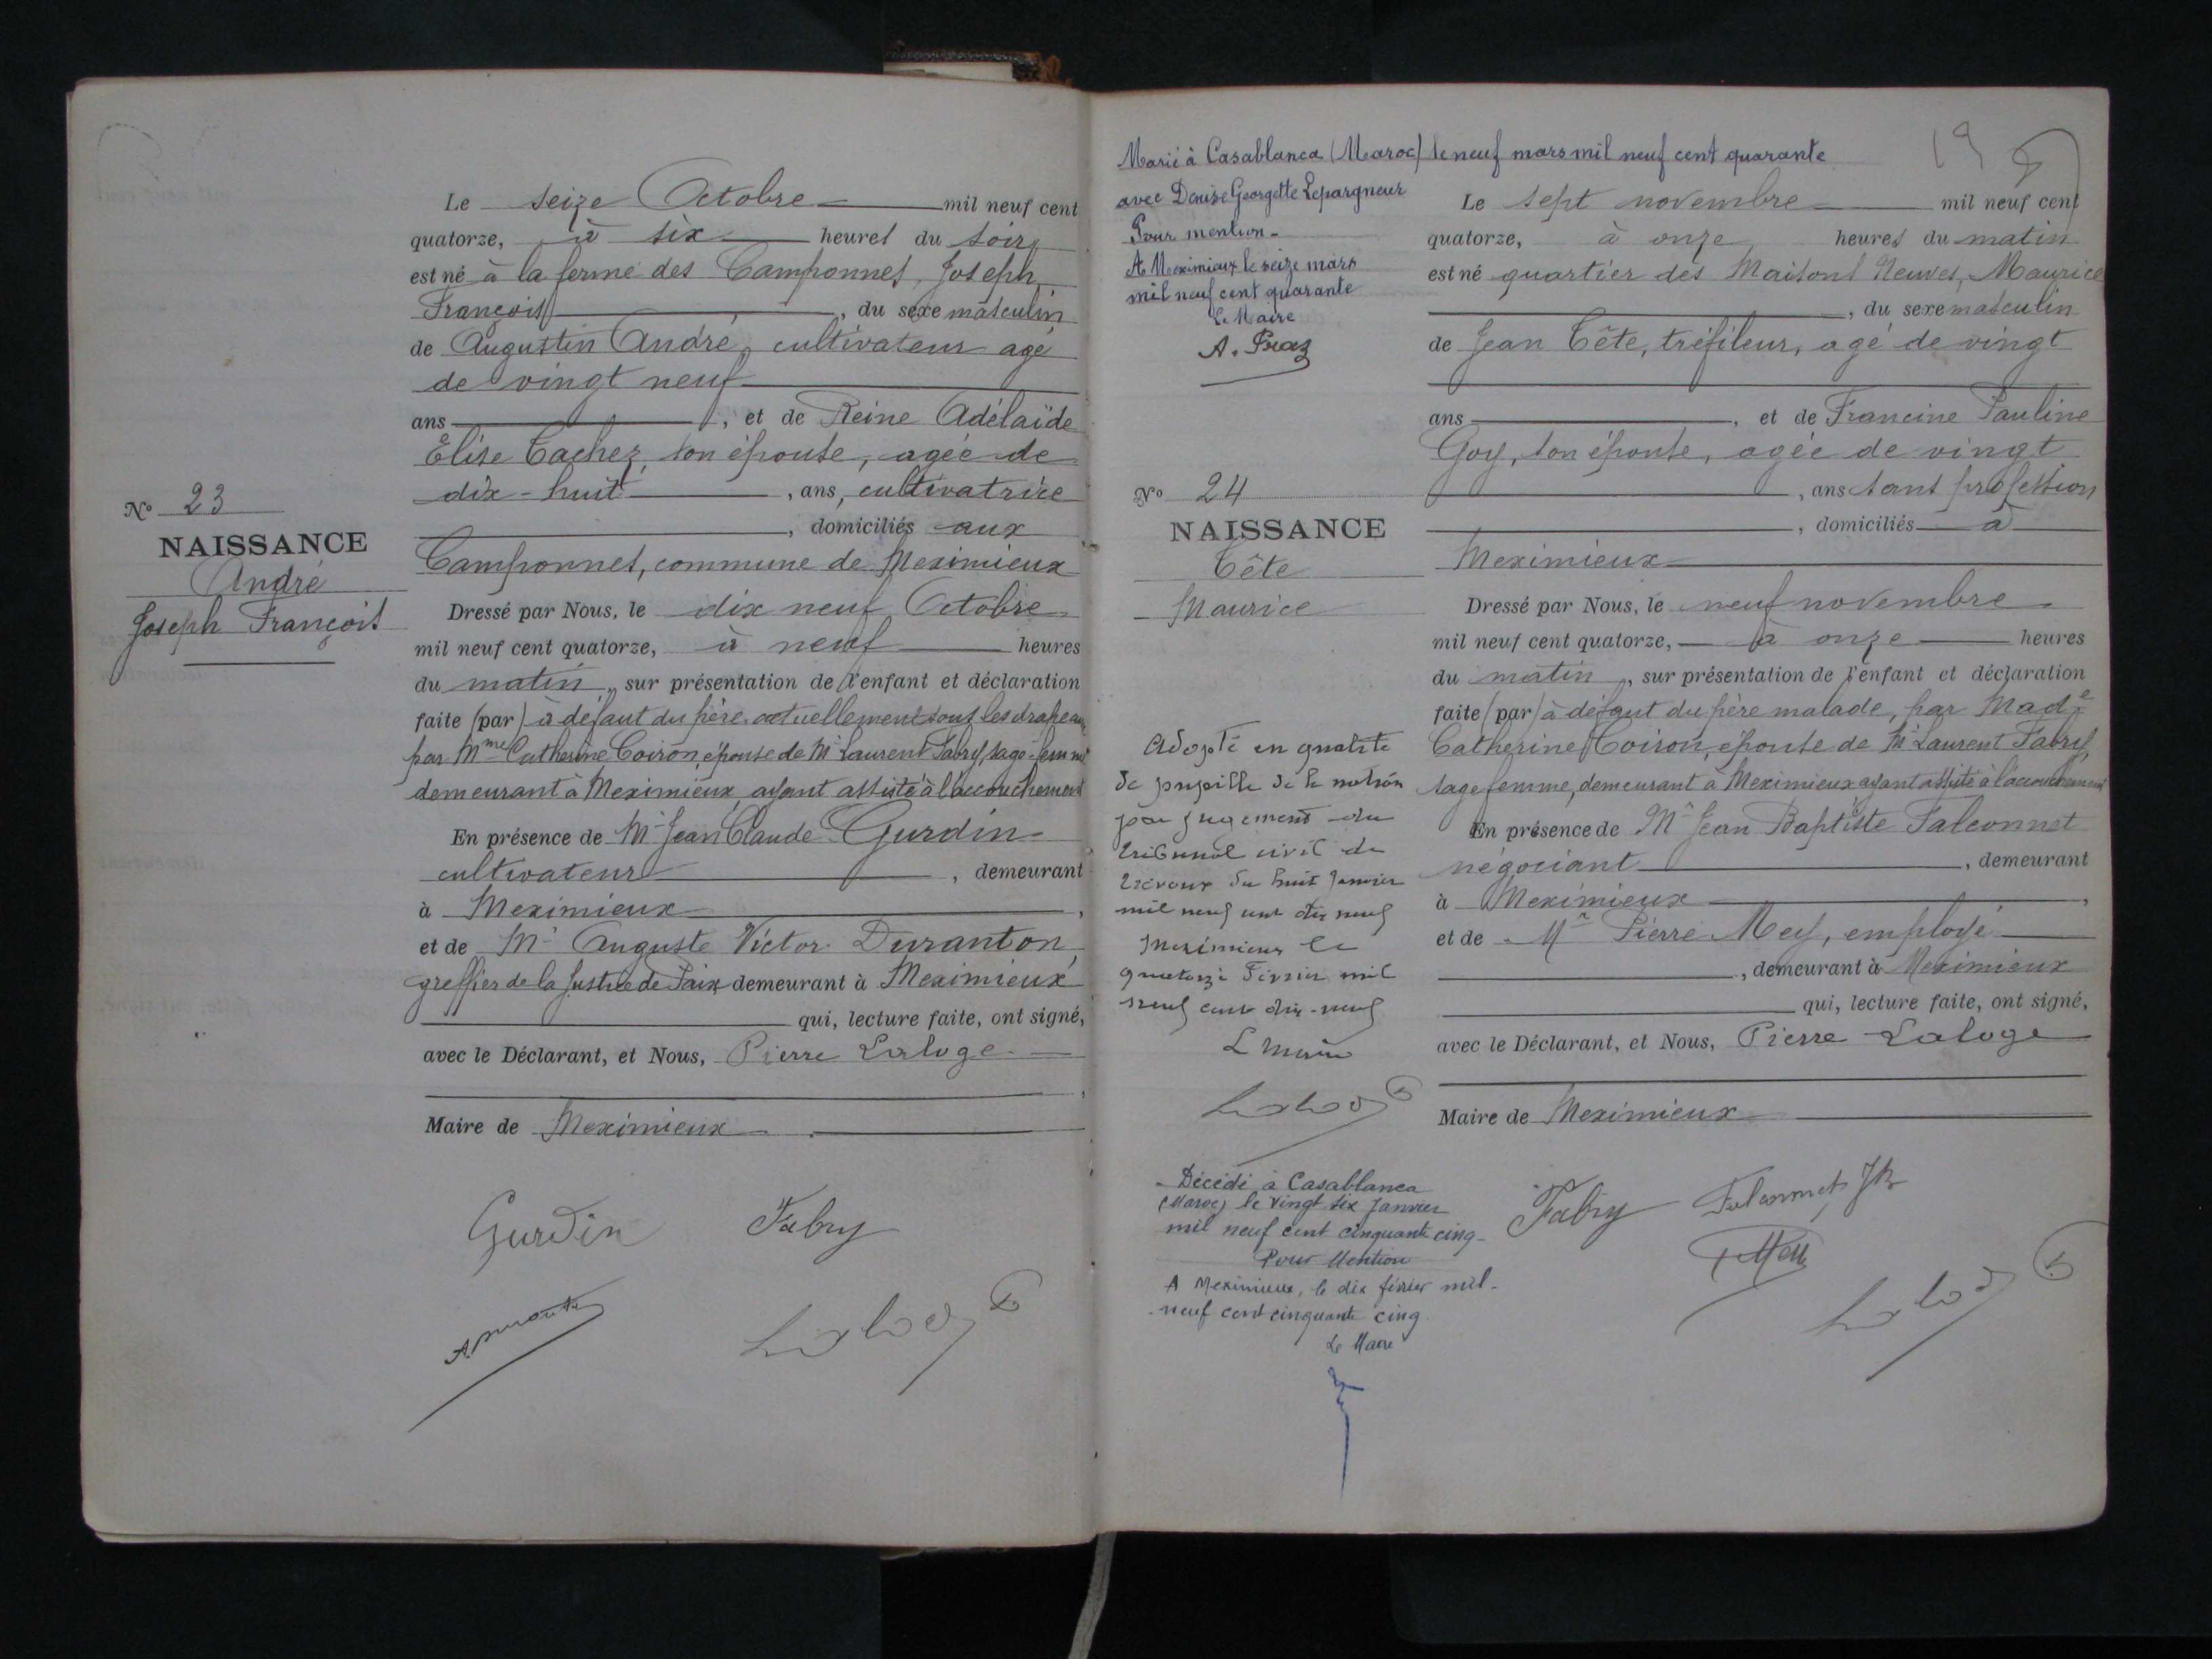 Le seize Octobre mil neuf cent
quatorze, à six heures du soir,
est né à la ferme des Camponnes, Joseph,
François, du sexe masculin
de Augustin André, cultivateur agé
de vingt neuf
ans, et de Reine Adélaïde
Elise Cachez, son épouse, agée de
dix-huit, ans, cultivatrice
, domiciliés aux
Camponnes, commune de Meximieux
Dressé par Nous, le dix neuf Octobre
mil neuf cent quatorze, à neuf heures
du matin, sur présentation de l'enfant et déclaration
faite (par) à défaut du père actuellement sous les drapeaux
par Mme Catherine Coiron, épouse de Mr Laurent Fabry, sage-femme
demeurant à Meximieux, ayant assisté à l'accouchement
En présence de Mr Jean Claude Gurdin
cultivateur, demeurant
à Meximieux,
et de Mr Auguste Victor Duranton,
greffier de la Justice de Paix demeurant à Meximieux
qui, lecture faite, ont signé,
avec le Déclarant, et Nous, Pierre Laloge
,
Maire de Meximieux
Gurdin Fabry
No 23
NAISSANCE
André
Joseph François
19
Marié à Casablanca (Maroc) le neuf mars mil neuf cent quarante
avec Denise Georgette Lepargneur
Pour mention
A Meximieux le seize mars
mil neuf cent quarante
Le Maire
A. Praz
No 24
NAISSANCE
Tête
Maurice
Adopté en qualité
de pupille de la nation
par jugement du
tribunal civil de
Trévoux du huit Janvier
mil neuf cent dix neuf
Meximieux le
quatorze Février mil
neuf cent dix-neuf
L Maire
Décédé à Casablanca
(Maroc) le vingt six Janvier
mil neuf cent cinquante cinq
Pour Mention
A Meximieux, le dix février mil
neuf cent cinquante cinq
Le Maire
Le sept novembre mil neuf cent
quatorze, à onze heures du matin
est né quartier des Maisons Neuves, Maurice
, du sexe masculin
de Jean Tête, tréfileur, agé de vingt
ans, et de Francine Pauline
Goy, son épouse, agée de vingt
, ans sans profession
, domiciliés à
Meximieux
Dressé par Nous, le neuf novembre
mil neuf cent quatorze, à onze heures
du matin, sur présentation de l'enfant et déclaration
faite (par) à défaut du père malade, par Made
Catherine Coiron, épouse de Mr Laurent Fabry,
sage femme, demeurant à Meximieux ayant assisté à l'accouchement
En présence de Mr Jean Baptiste Falconnet
négociant, demeurant
à Meximieux,
et de Mr Pierre Mey, employé
, demeurant à Meximieux
qui, lecture faite, ont signé,
avec le Déclarant, et Nous, Pierre Laloge
Maire de Meximieux
Fabry Falconnet JB